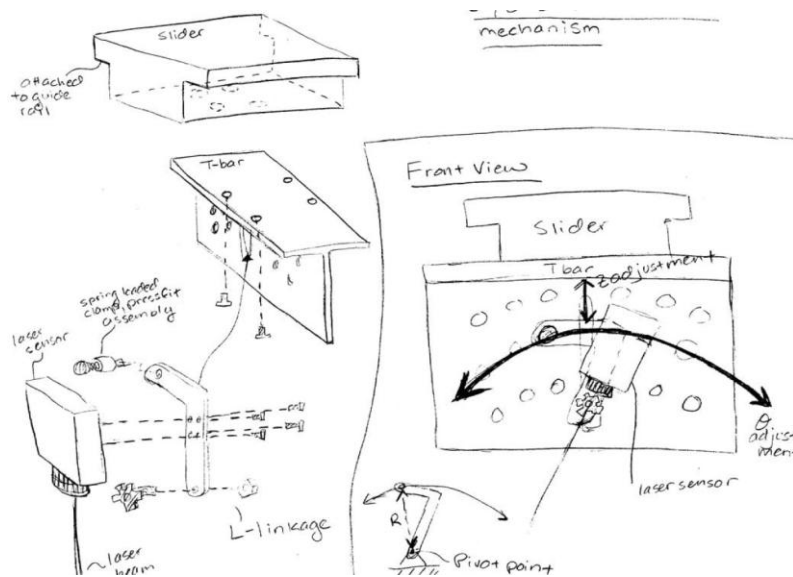 mechanism
Slider
attached
to guide
rail
T-bar
spring loaded
clamp, pressfit
assembly
laser
sensor
L-linkage
laser
beam
Front View
Slider
T bar
z adjustment
θ
adjust-
ment
laser sensor
R
Pivot point